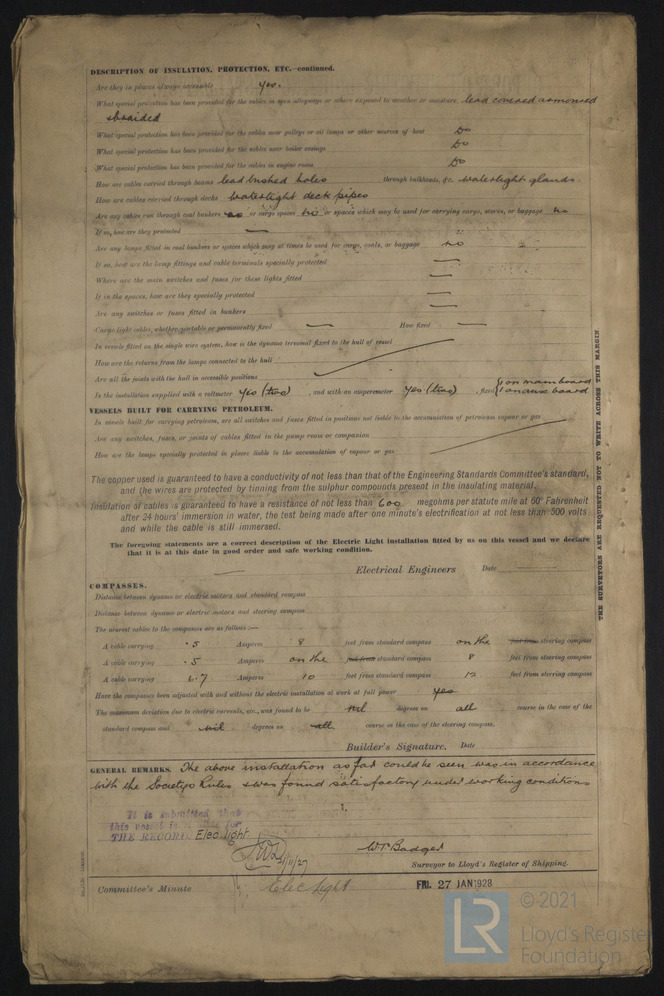 DESCRIPTION OF INSULATION, PROTECTION, ETC.—continued.
Are they in places always accessible yes.
What special protection has been provided for the cables in open alleyways or where exposed to weather or moisture lead covered armoured
& braided
What special protection has been provided for the cables near galleys or oil lamps or other sources of heat Do
What special protection has been provided for the cables near boiler casings Do
What special protection has been provided for the cables in engine room Do
How are cables carried through beams lead bushed holes through bulkheads, &c. watertight glands
How are cables carried through decks watertight deck pipes
Are any cables run through coal bunkers no or cargo spaces no or spaces which may be used for carrying cargo, stores, or baggage no
If so, how are they protected —
Are any lamps fitted in coal bunkers or spaces which may at times be used for cargo, coals, or baggage no
If so, how are the lamp fittings and cable terminals specially protected —
Where are the main switches and fuses for these lights fitted —
If in the spaces, how are they specially protected —
Are any switches or fuses fitted in bunkers —
Cargo light cables, whether portable or permanently fixed — How fixed —
In vessels fitted on the single wire system, how is the dynamo terminal fixed to the hull of vessel
How are the returns from the lamps connected to the hull
Are all the joints with the hull in accessible positions
Is the installation supplied with a voltmeter yes (two), and with an amperemeter yes (two), fixed 1 on main board
1 on aux board
VESSELS BUILT FOR CARRYING PETROLEUM.
In vessels built for carrying petroleum, are all switches and fuses fitted in positions not liable to the accumulation of petroleum vapour or gas
Are any switches, fuses, or joints of cables fitted in the pump room or companion
How are the lamps specially protected in places liable to the accumulation of vapour or gas
The copper used is guaranteed to have a conductivity of not less than that of the Engineering Standards Committee's standard,
and the wires are protected by tinning from the sulphur compounds present in the insulating material.
Insulation of cables is guaranteed to have a resistance of not less than 600 megohms per statute mile at 60° Fahrenheit
after 24 hours' immersion in water, the test being made after one minute's electrification at not less than 500 volts
and while the cable is still immersed.
The foregoing statements are a correct description of the Electric Light installation fitted by us on this vessel and we declare
that it is at this date in good order and safe working condition.
Electrical Engineers Date
COMPASSES.
Distance between dynamo or electric motors and standard compass
Distance between dynamo or electric motors and steering compass
The nearest cables to the compasses are as follows:—
A cable carrying .5 Amperes 8 feet from standard compass on the feet from steering compass
A cable carrying .5 Amperes on the feet from standard compass 8 feet from steering compass
A cable carrying 6.7 Amperes 10 feet from standard compass 12 feet from steering compass
Have the compasses been adjusted with and without the electric installation at work at full power yes
The maximum deviation due to electric currents, etc., was found to be nil degrees on all course in the case of the
standard compass and nil degrees on all course in the case of the steering compass.
Builder's Signature. Date
GENERAL REMARKS. The above installation as far could be seen was in accordance
with the Societys Rules & was found satisfactory under working conditions
It is submitted that
this vessel is for
THE RECORD. Elec light.
21/11/27
W P Badger
Surveyor to Lloyd's Register of Shipping.
Committee's Minute Elec Light FRI. 27 JAN 1928
THE SURVEYORS ARE REQUESTED NOT TO WRITE ACROSS THIS MARGIN
© 2021
LR
Lloyd's Register
Foundation